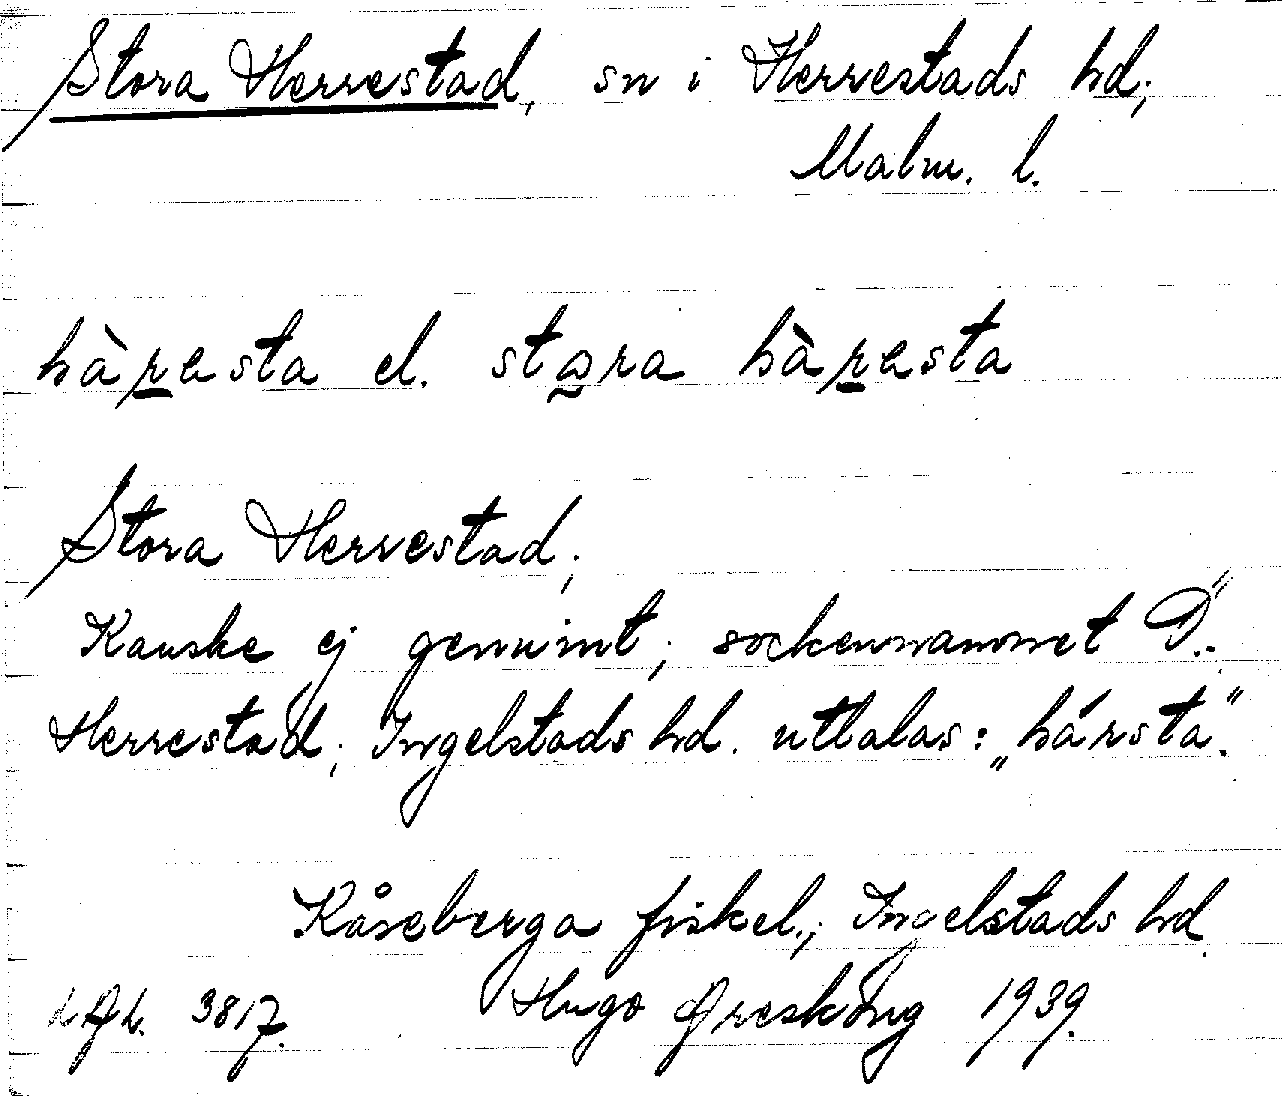 Stora Herrestad, sn i Herrestads hd;
Malm. l.
hàresta el. stora hàresta
Stora Herrestad;
Kanske ej genuint; sockennamnet Ö.
Herrestad; Ingelstads hd. uttalas: „hársta".
Kåseberga fiskel.; Ingelstads hd.
3817. Hugo Areskoug 1939.